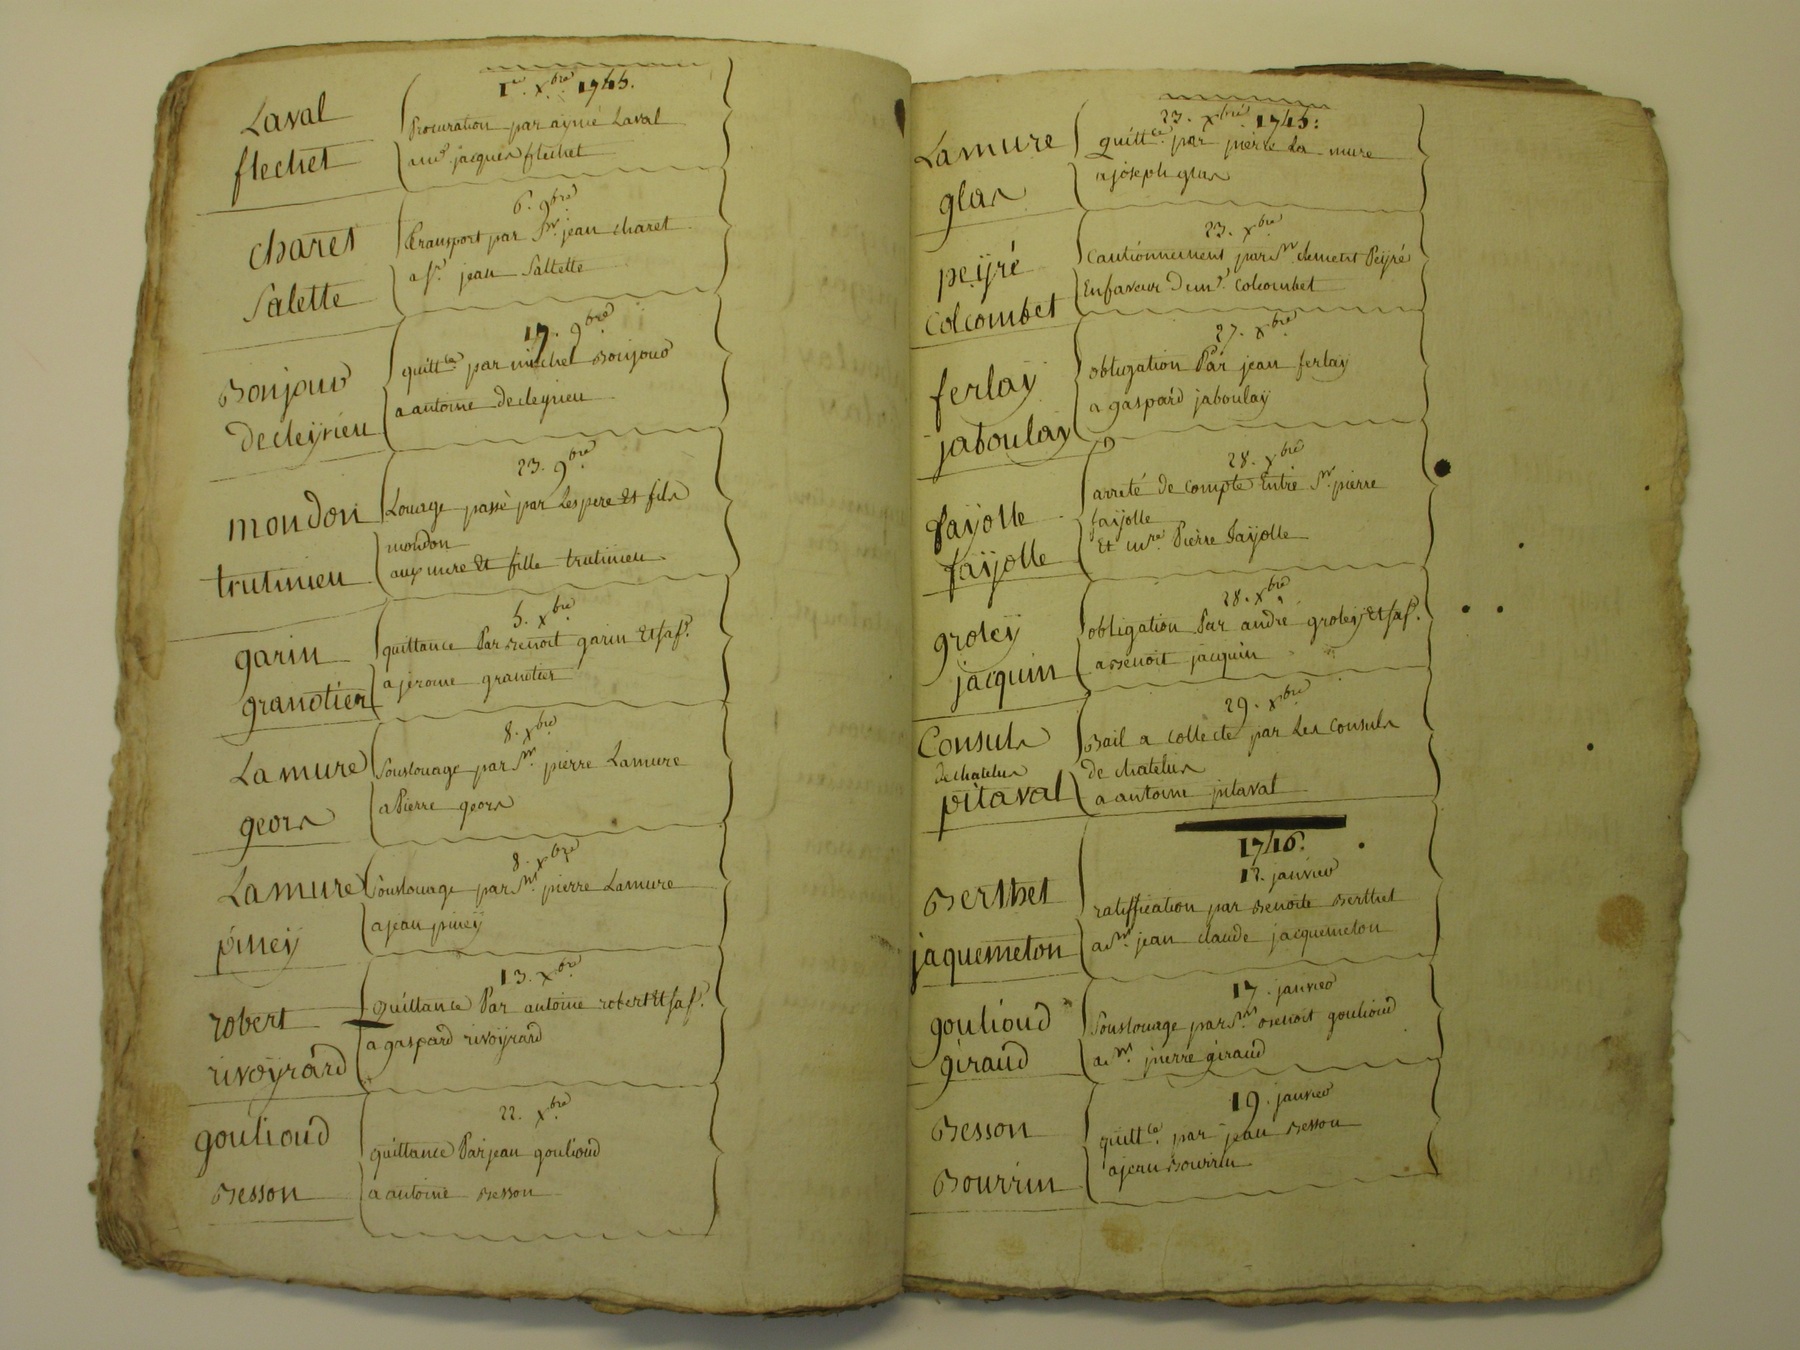 1er. Xbre 1745.
Laval
flechet
Procuration par aymé Laval
a md. jacques flechet
6. 9bre
charet
Salette
Transport par Sr. jean charet
a sr. jean Sallette
17. 9bre
Bonjour
decleÿrieu
quittce. par michel Bonjour
a antoine decleyrieu
23. 9bre
mondon
trutinieu
Louage passé par Les pere Et fils
mondon
aux mere Et fille trutinieu
5. Xbre
garin
granotier
quittance Par Benoit garin Et sa f.
a jerome granotier
8. Xbre
Lamure
geors
Souslouage par Sr. pierre Lamure
a Pierre geors
8. Xbre
Lamure
pineÿ
Souslouage par Sr. pierre Lamure
a jean pineÿ
13. Xbre
robert
rivoÿrard
Quittance Par antoine robert Et sa f.
a gaspard rivoÿrard
22. Xbre
goulioud
Besson
quittance Par jean goulioud
a antoine Besson
23. Xbre 1745.
Lamure
glas
quittce. par pierre La mure
a joseph glas
23. Xbre
peÿré
colcombet
Cautionnement par Sr. clement Peÿré
En faveur de md. colcombet
27. Xbre
ferlaÿ
jaboulaÿ
obligation Par jean ferlaÿ
a gaspard jaboulaÿ
28. Xbre
faÿolle
faÿolle
arreté de compte Entre Sr. pierre
faÿolle
Et mre. Pierre faÿolle
28. Xbre
groleÿ
jacquin
obligation Par andré groleÿ Et sa f.
a Benoit jacquin
29. Xbre
Consuls
de chatelus
pitaval
Bail a collecte par Les Consuls
de chatelus
a antoine pitaval
1746.
12. janvier
Berthet
jaquemeton
ratiffication par Benoite Berthet
a Sr. jean claude jacquemeton
17. janvier
goulioud
giraud
Souslouage par Sr. Benoit goulioud
a Sr. pierre giraud
19. janvier
Besson
Bourrin
quittce. par jean Besson
a jean Bourrin